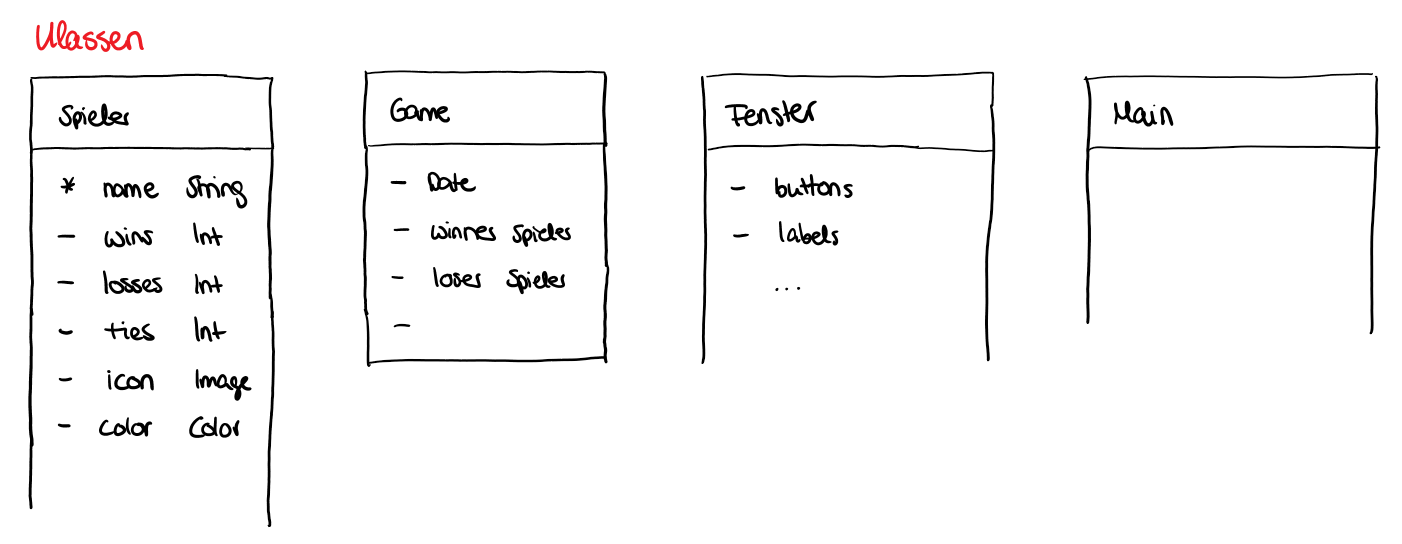 Klassen
Spieler
* name String
- wins Int
- losses Int
- ties Int
- icon Image
- color Color
Game
- Date
- winner Spieler
- loser Spieler
-
Fenster
- buttons
- labels
...
Main